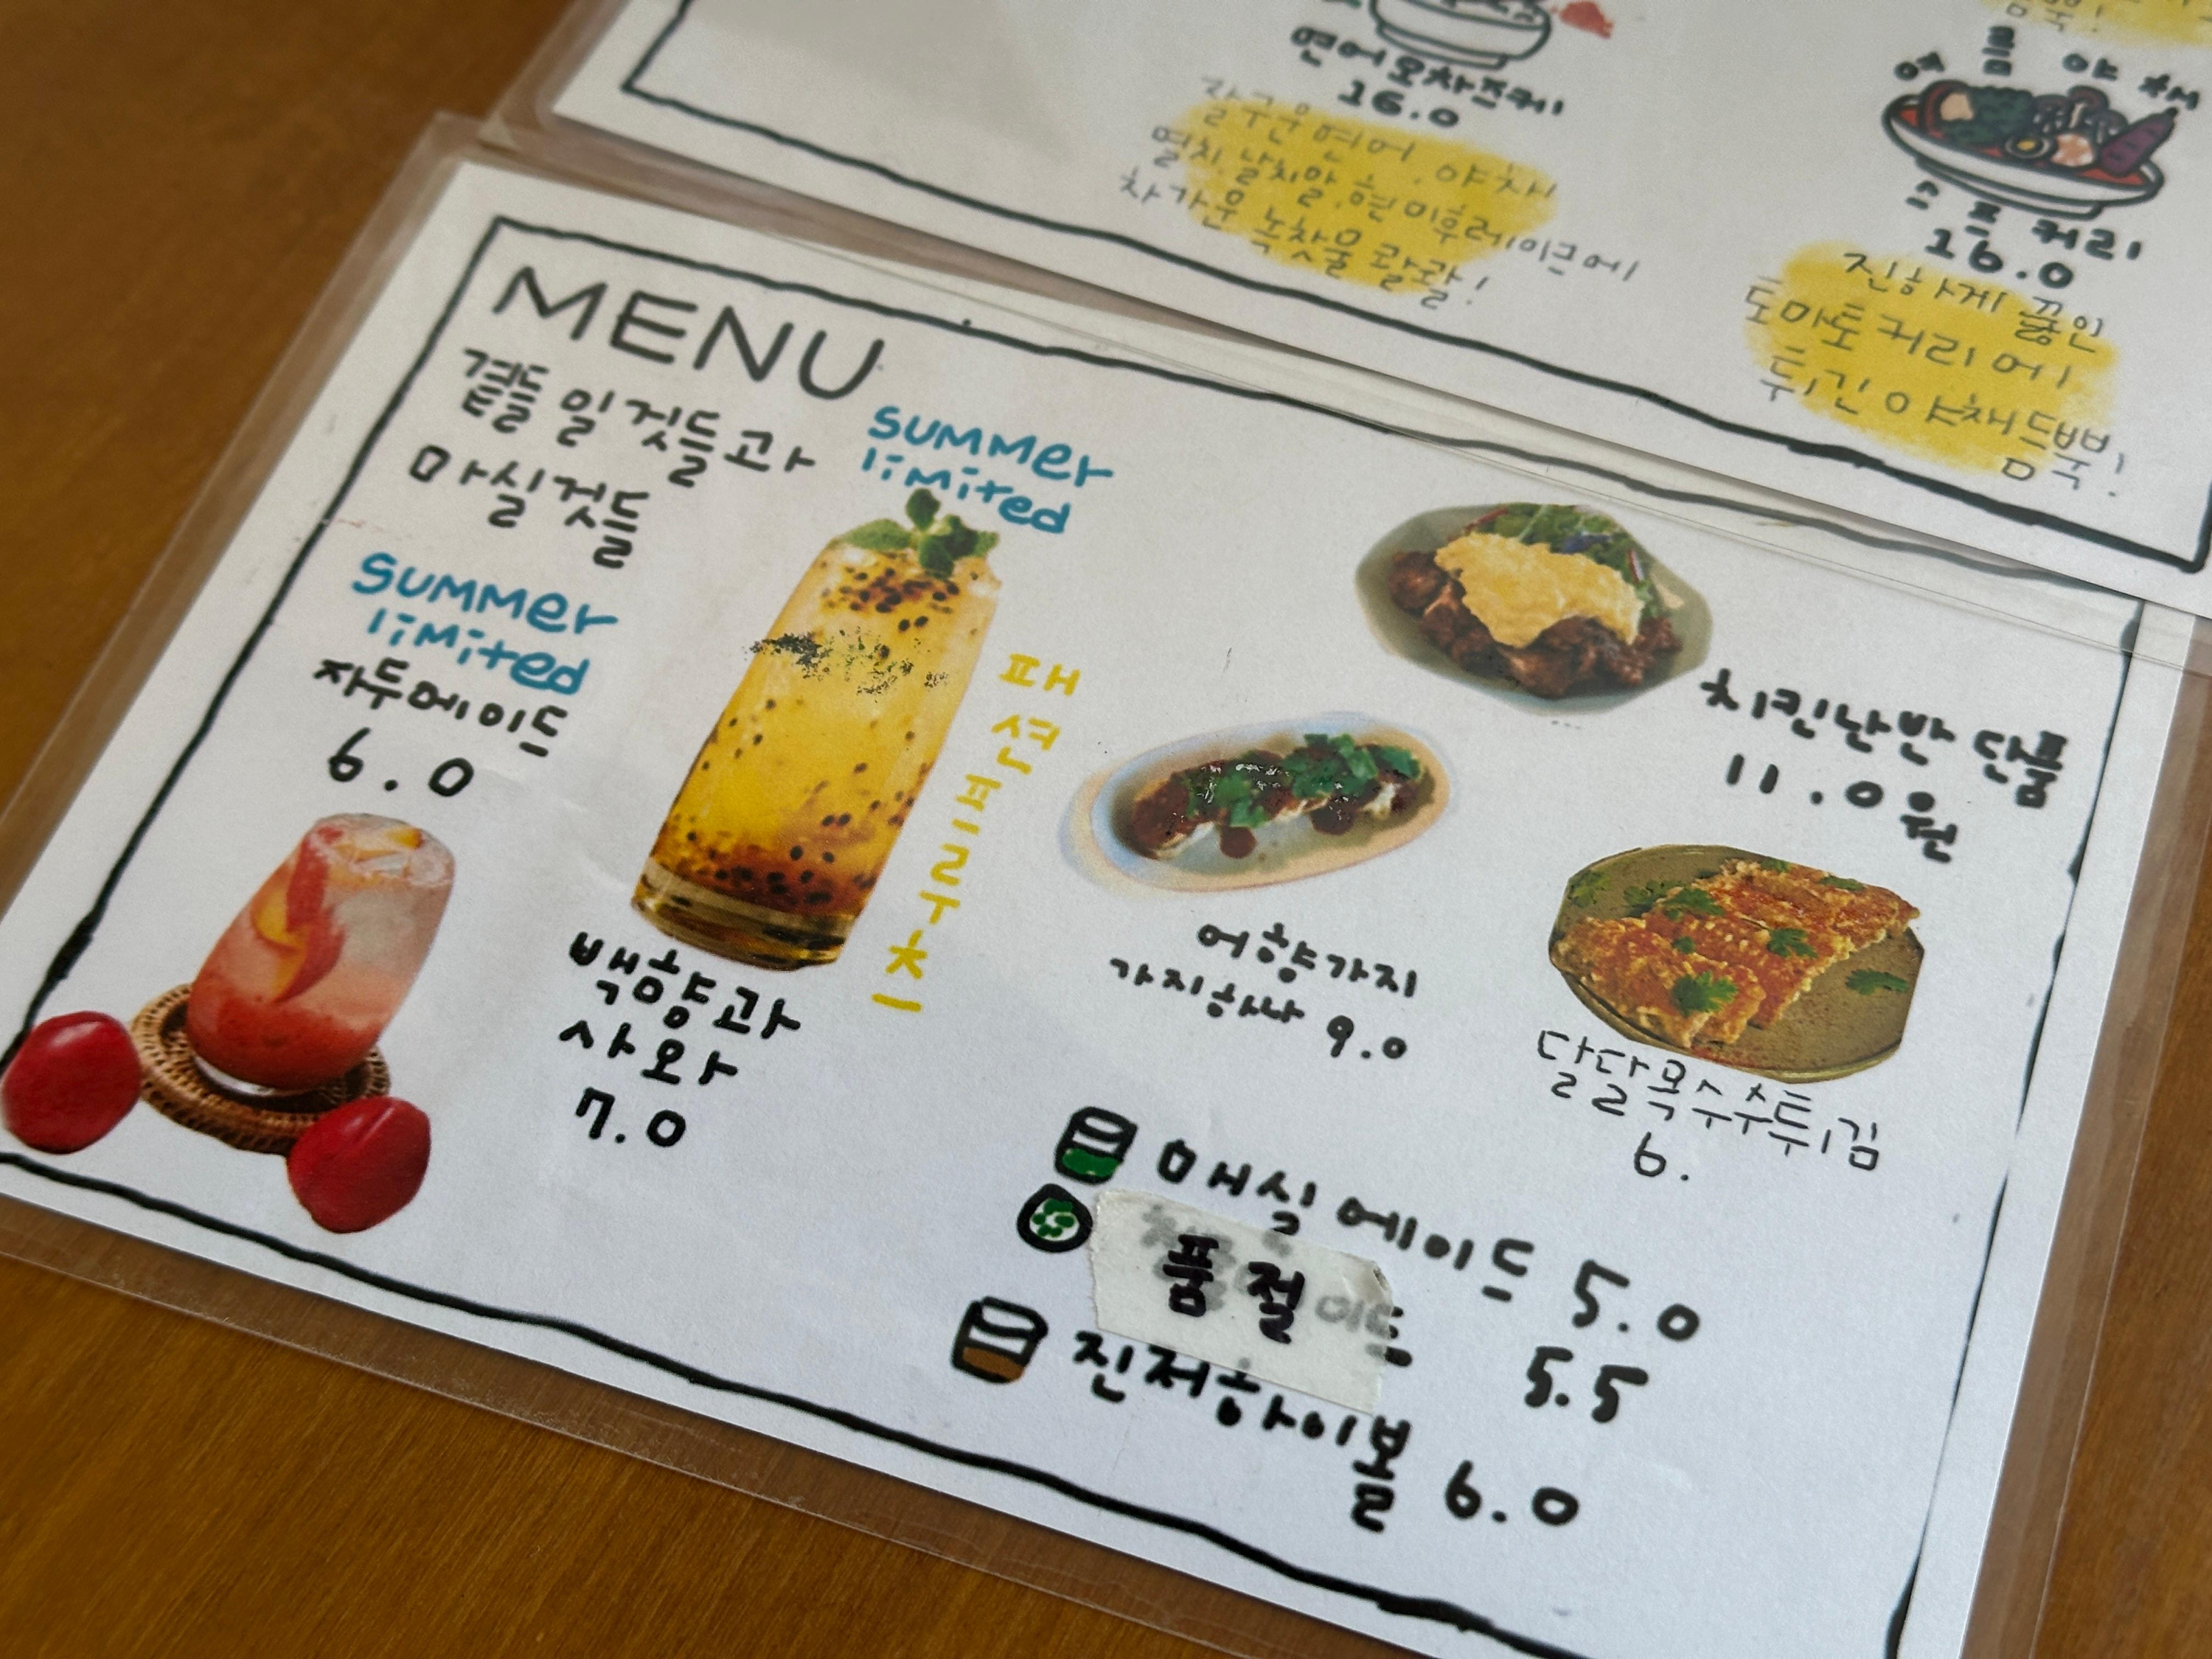 연어오차즈케
16.0
잘구운 연어, 야채
멸치, 날치알, 현미후레이크에
차가운 녹찻물 콸콸!
여름야채
스프커리
16.0
진하게 끓인
토마토 커리에
튀긴 야채 듬뿍!
MENU
곁들일것들과
마실것들
SUMMER
limited
자두에이드
6.0
SUMMER
limited
패션프루츠
백향과
사와
7.0
치킨난반 단품
11.0원
어향가지
가지하나 9.0
달달옥수수튀김
6.
매실에이드 5.0
품절
이드 5.5
진저하이볼 6.0